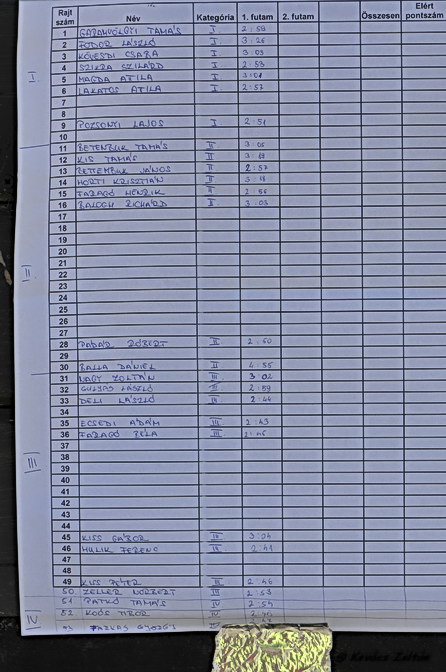 Rajt szám Név Kategória 1. futam 2. futam Összesen Elért pontszám
1 GARAMVÖLGYI TAMÁS I 2:58
2 FODOR LÁSZLÓ I 3:26
3 KÖVESDI CSABA I 3:03
4 SZIKRA SZILÁRD I 2:53
I
5 MAGDA ATILA I
6 LAKATOS ATILA I 2:57
7
8
9 POZSONYI LAJOS I 2:51
10
11 BETEMBUK TAMÁS II 3:05
12 KIS TAMÁS II
13 BETTEMBUK JÁNOS II 2:57
14 HORTI KRISZTIÁN II
15 FARAGÓ HENRIK II 2:56
16 BALOGH RICHÁRD I 3:03
17
18
19
20
21
II
22
23
24
25
26
27
28 PADÁR RÓBERT II 2:50
29
30 BALLA DÁNIEL II 4:55
31 NAGY ZOLTÁN III 3:02
32 GULYÁS LÁSZLÓ III 2:59
33 DELI LÁSZLÓ III 2:44
34
35 ECSEDI ÁDÁM III 2:43
36 FARAGÓ BÉLA III 2:45
37
38
III
39
40
41
42
43
44
45 KISS GÁBOR III 3:04
46 HULIK FERENC III 2:41
47
48
49 KISS PÉTER III 2:46
50 ZELLER NORBERT III 2:53
51 PATKÓ TAMÁS IV 2:54
IV
52 KOÓS TIBOR IV
FARKAS
Kovács Zoltán